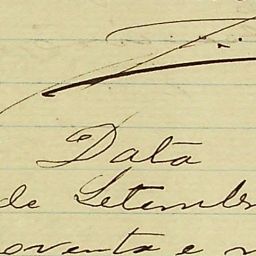 Data
de Setembr
oventa e n